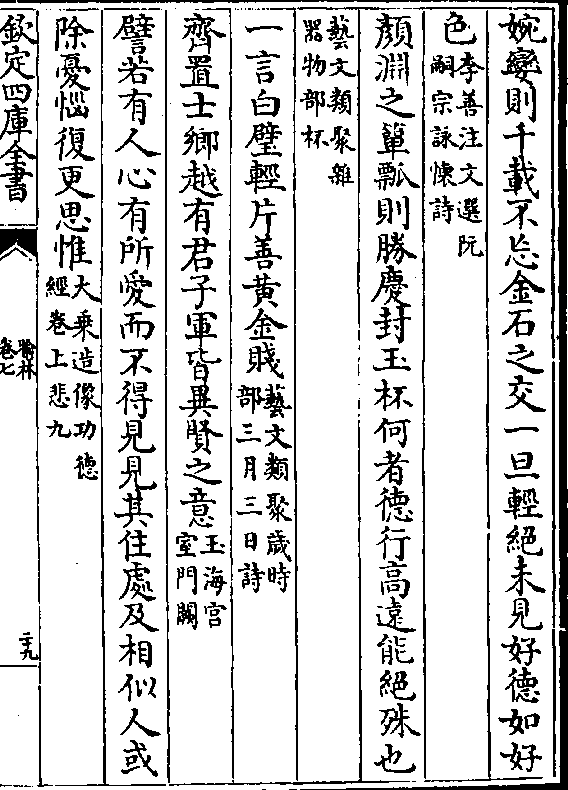 婉孌則千載不忘金石之交一旦輕絕未見好德如好
色李善注文選阮
嗣宗詠懷詩
顏淵之簞瓢則勝慶封玉杯何者德行高遠能絕殊也
藝文類聚雜
器物部杯
一言白璧輕片善黃金賤藝文類聚歲時
部三月三日詩
齊置士鄉越有君子軍皆異賢之意玉海宮
室門闕
譬若有人心有所愛而不得見見其住處及相似人或
除憂惱復更思惟大乘造像功德
經卷上悲九
欽定四庫全書
喻林
卷七
三九